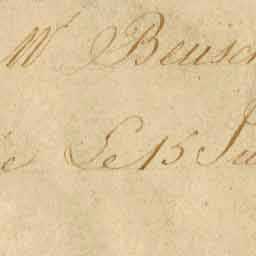 Mr Beusch
e Le 15 Ju